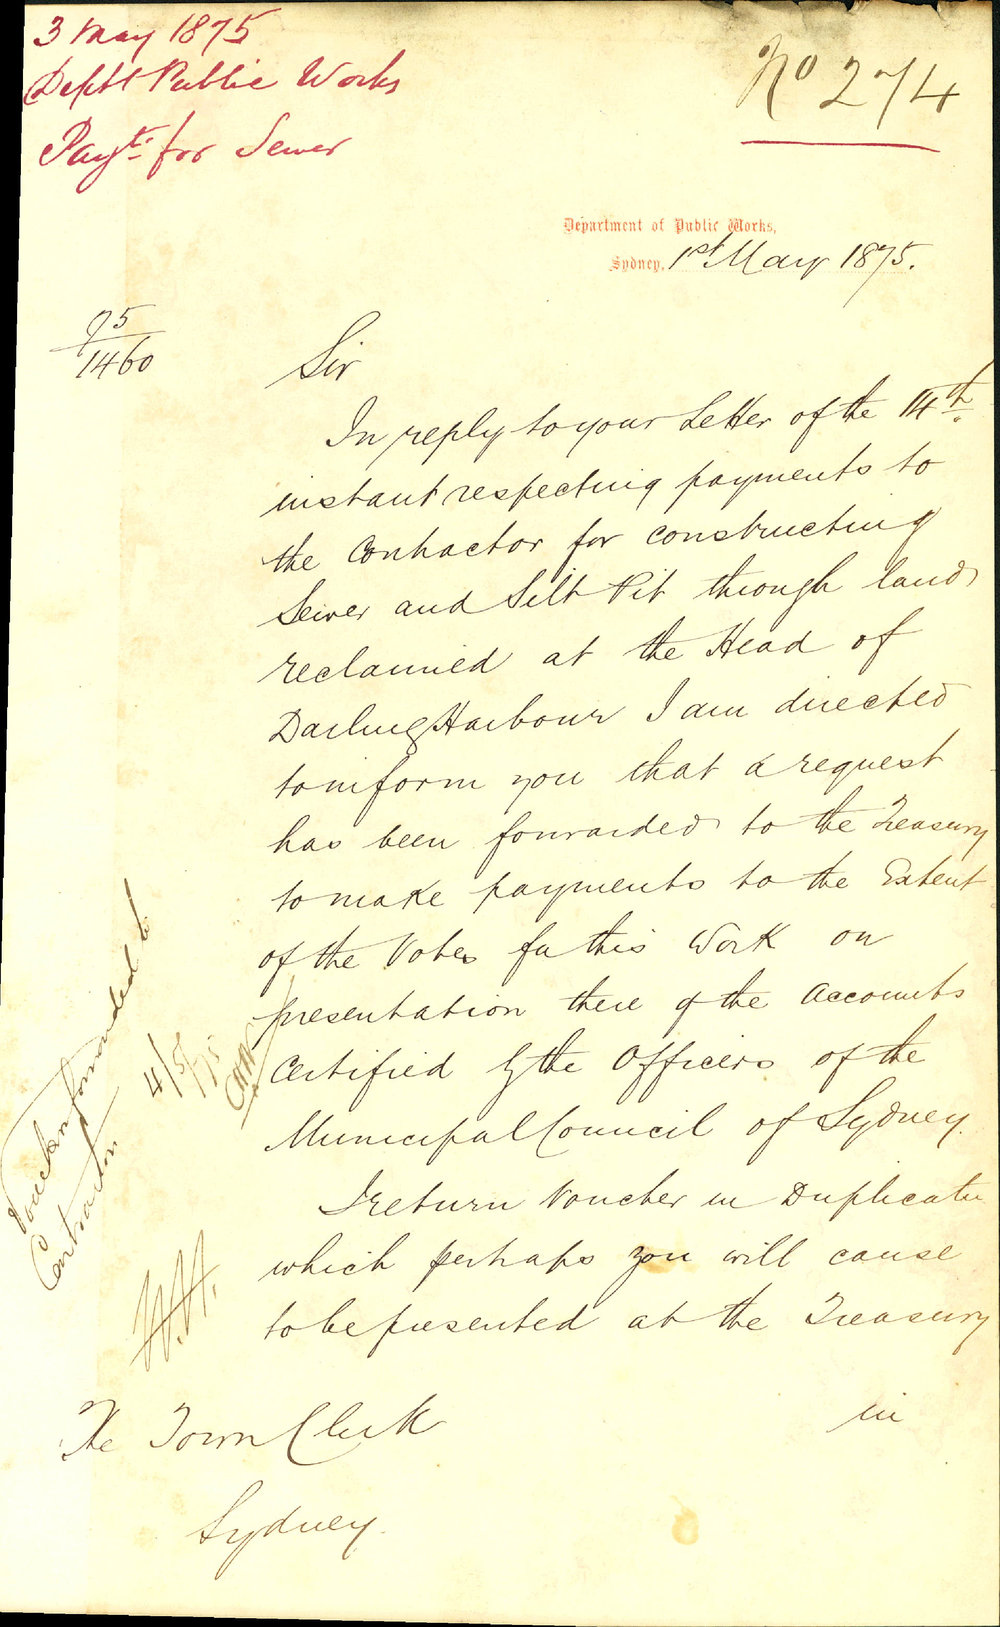 3 May 1875
Deptt Public Works
Payt. for Sewer
No 274
Department of Public Works,
Sydney, 1st May 1875.
75
1460
Sir
In reply to your Letter of the 14th.
instant respecting payments to
the Contractor for constructing
Sewer and Silt Pit through land
reclaimed at the Head of
Darling Harbour I am directed
to inform you that a request
has been forwarded to the Treasury
to make payments to the Extent
of the Votes for this Work on
presentation there of the Accounts
Certified by the Officers of the
Municipal Council of Sydney.
I return Voucher in Duplicate
which perhaps you will cause
to be presented at the Treasury
in
The Town Clerk
Sydney.
Voucher forwarded to
Contractor
4/5/75